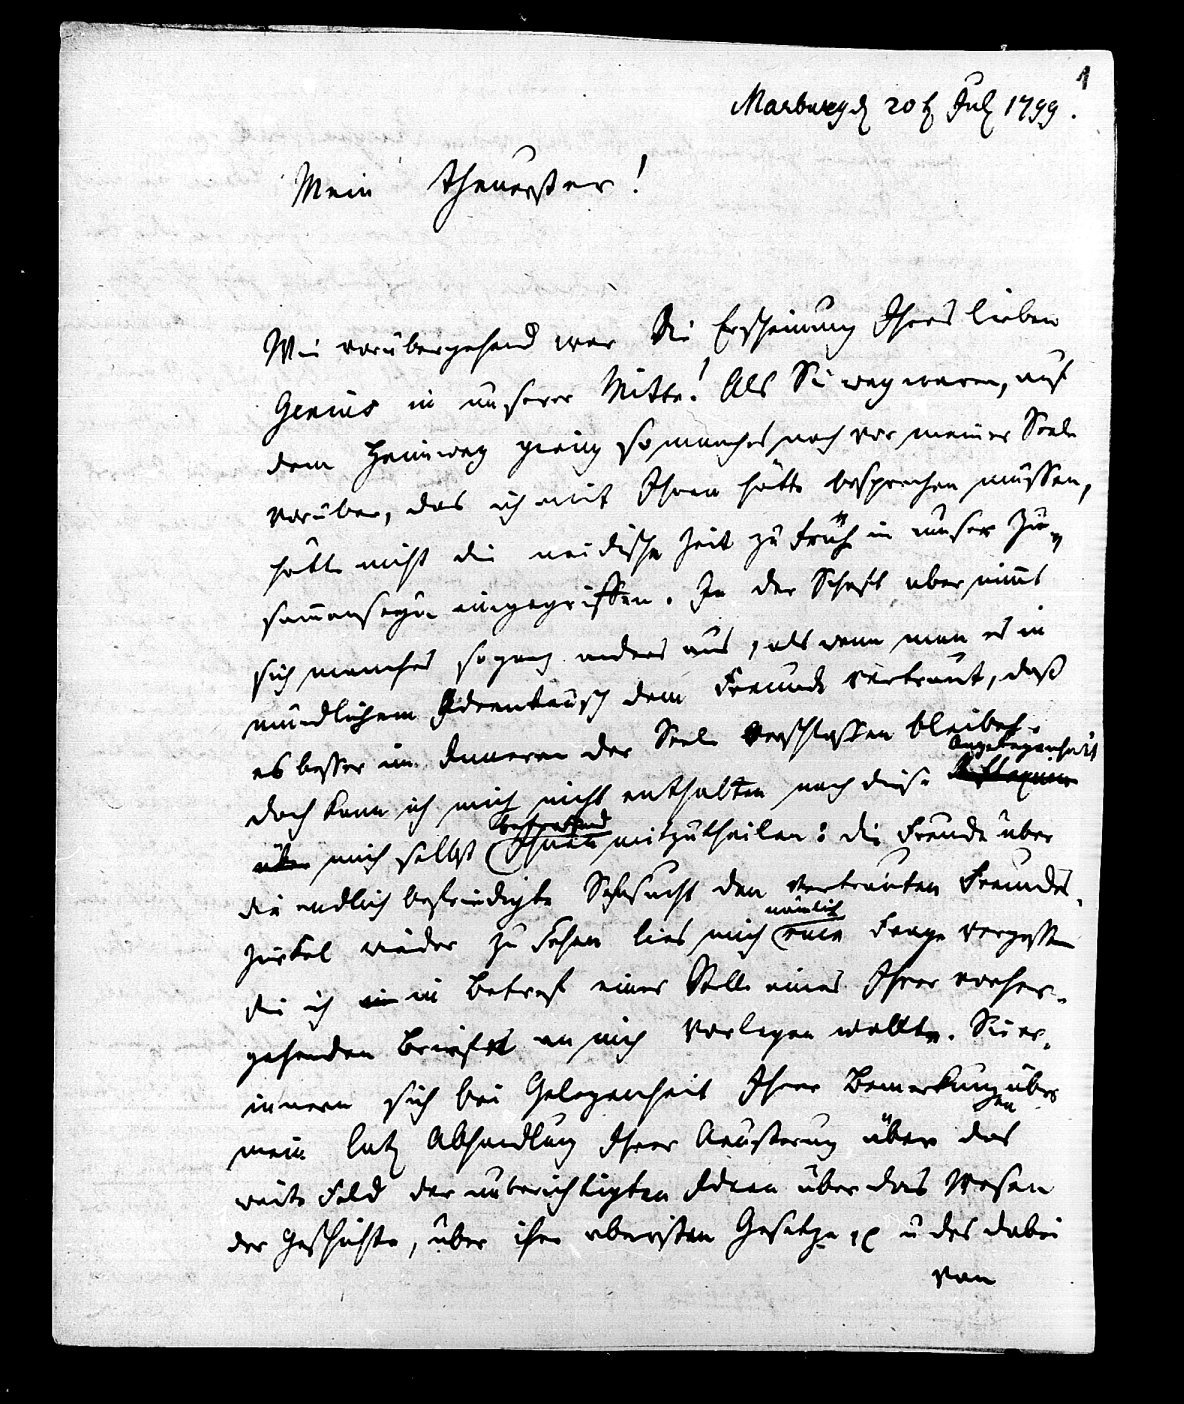 1
Marburg d 20t Jul 1799.
Mein theuerster!
Wie vorübergehend war die Erscheinung Ihres lieben
Genius in unserer Mitte! Als Sie weg waren, auf
dem Heimweg gieng so manches noch vor meiner Seele
vorüber, das ich mit Ihnen hätte besprechen müssen,
hätte nicht die neidische Zeit zu früh in unser Zu-
sam̄enseyn eingegriffen. In der Schrift aber nim̄t
sich manches so ganz anders aus, als wenn man es in
mündlichem Ideentausch dem Freunde vertraut, daß
es besser im Inneren der Seele verschlossen bleibet.
doch kann ich mich nicht enthalten noch diese Angelegenheit
über mich selbst betreffend Ihnen mitzutheilen: die Freude über
die endlich befriedigte Sehnsucht den vertrauten Freundes-
zirkel wieder zu sehen lies mich nämlich eine Frage vergessen
die ich in Betref einer Stelle eines Ihrer vorher-
gehenden Briefe an mich vorlegen wollte. Sie er-
innern sich bei Gelegenheit Ihrer Bemerkungen über
mein letz Abhandlung Ihrer Aeusserung über das
weite Feld der unberichtigten Ideen über das Wesen
der Geschichte, über ihre obersten Gesetze u des dabei
von